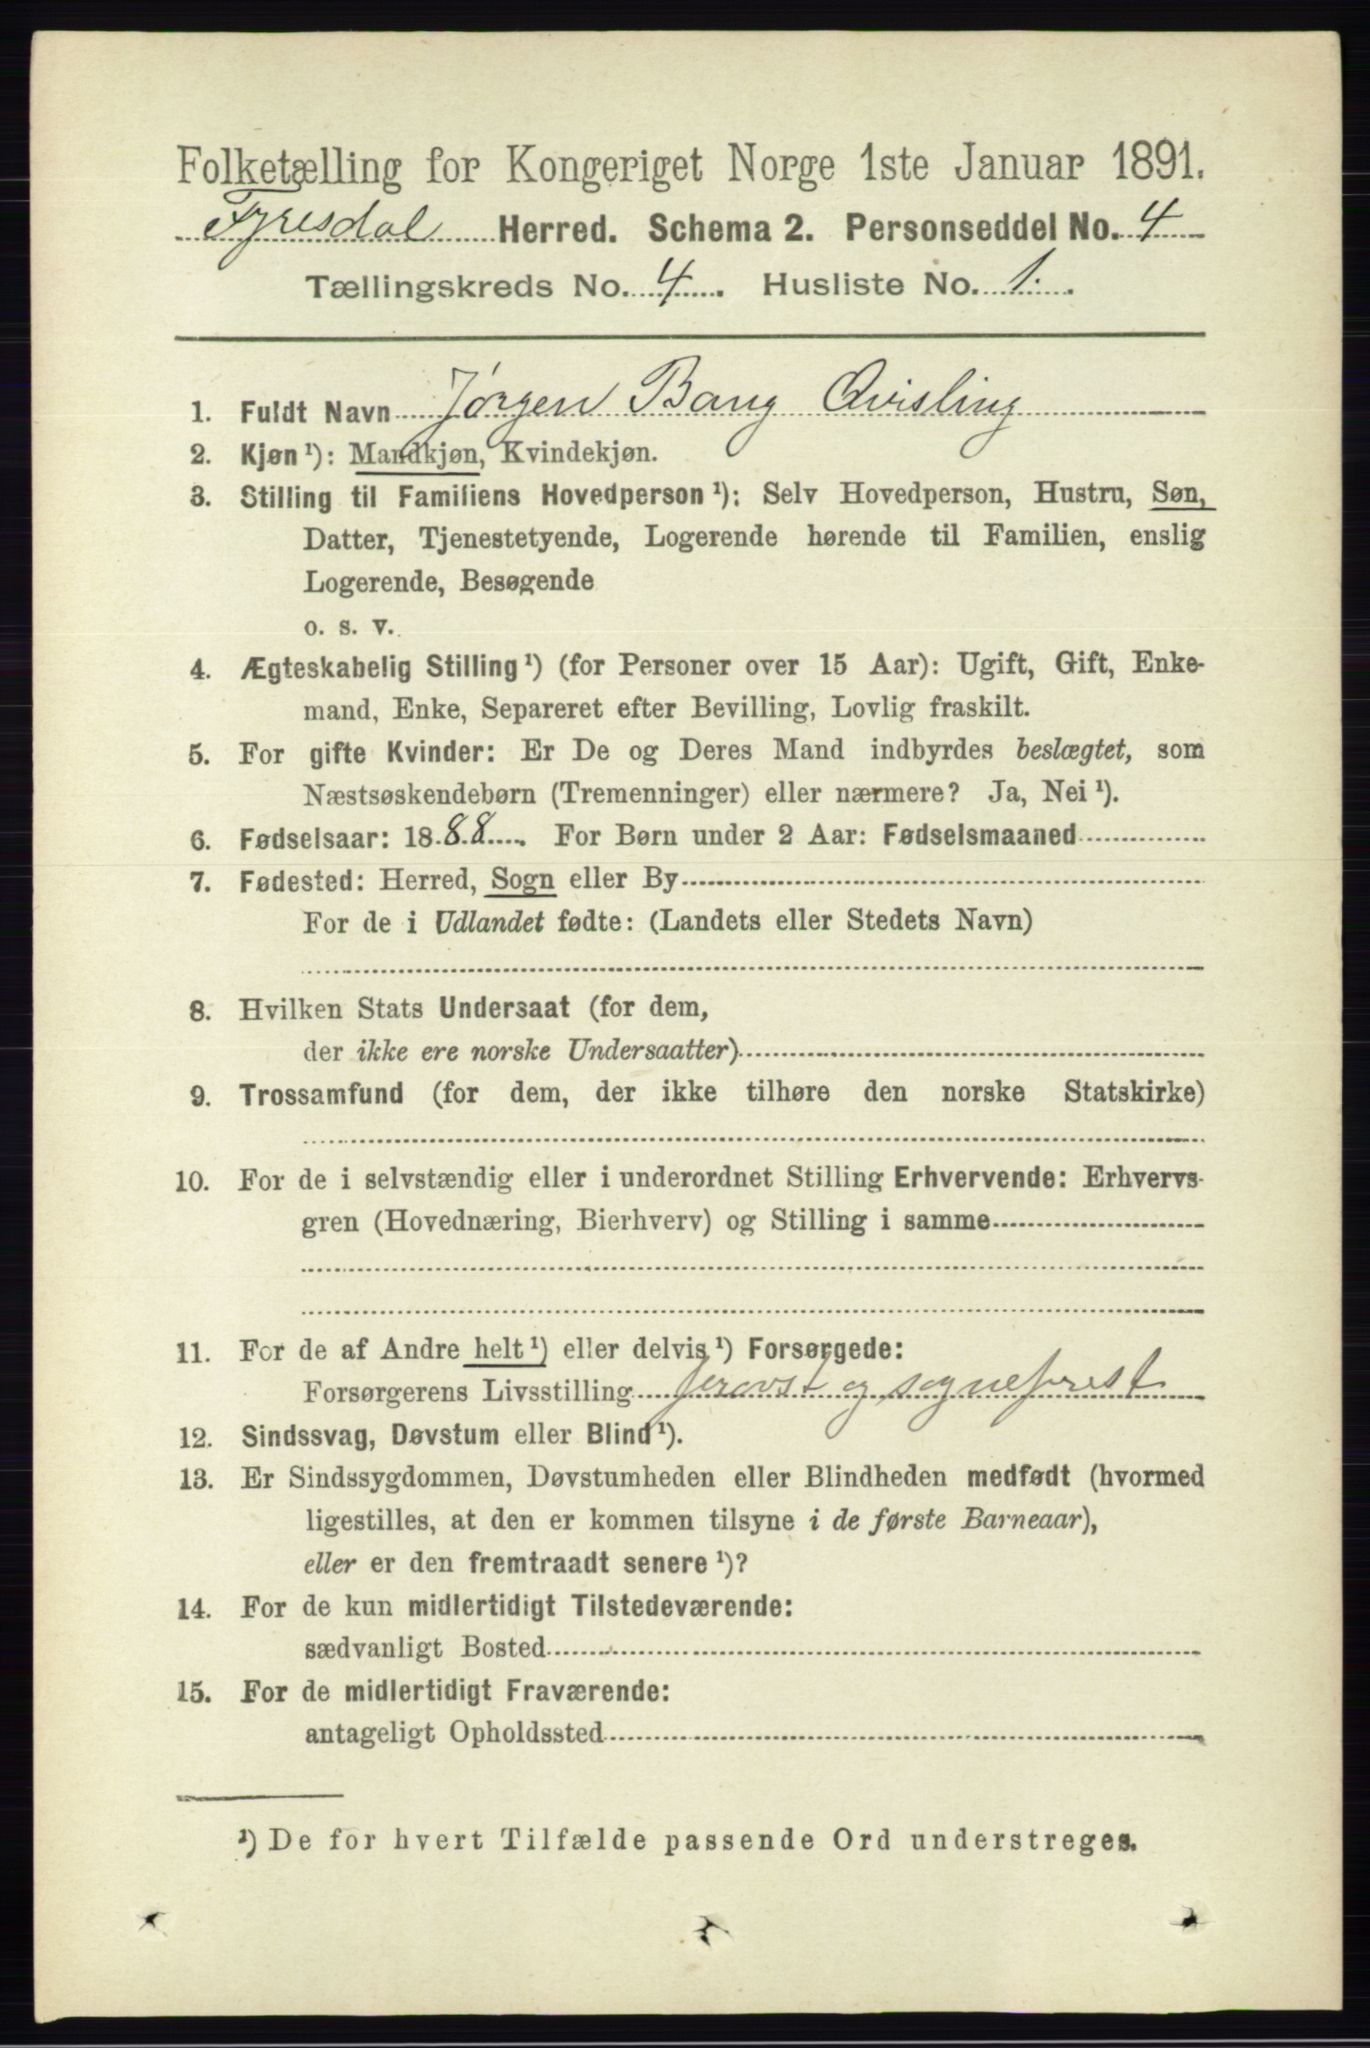 Folketælling for Kongeriget Norge 1ste Januar 1891.
Fyresdal Herred. Schema 2. Personseddel No. 4
Tællingskreds No. 4. Husliste No. 1.
1. Fuldt Navn Jørgen Bang Qvisling
2. Kjøn ¹): Mandkjøn, Kvindekjøn.
3. Stilling til Familiens Hovedperson ¹): Selv Hovedperson, Hustru, Søn,
Datter, Tjenestetyende, Logerende hørende til Familien, enslig
Logerende, Besøgende
o. s. v.
4. Ægteskabelig Stilling ¹) (for Personer over 15 Aar): Ugift, Gift, Enke-
mand, Enke, Separeret efter Bevilling, Lovlig fraskilt.
5. For gifte Kvinder: Er De og Deres Mand indbyrdes beslægtet, som
Næstsøskendebørn (Tremenninger) eller nærmere? Ja, Nei ¹).
6. Fødselsaar: 1888. For Børn under 2 Aar: Fødselsmaaned
7. Fødested: Herred, Sogn eller By
For de i Udlandet fødte: (Landets eller Stedets Navn)
8. Hvilken Stats Undersaat (for dem,
der ikke ere norske Undersaatter)
9. Trossamfund (for dem, der ikke tilhøre den norske Statskirke)
10. For de i selvstændig eller i underordnet Stilling Erhvervende: Erhvervs-
gren (Hovednæring, Bierhverv) og Stilling i samme
11. For de af Andre helt ¹) eller delvis ¹) Forsørgede:
Forsørgerens Livsstilling provst og sogneprest
12. Sindssvag, Døvstum eller Blind ¹).
13. Er Sindssygdommen, Døvstumheden eller Blindheden medfødt (hvormed
ligestilles, at den er kommen tilsyne i de første Barneaar),
eller er den fremtraadt senere ¹)?
14. For de kun midlertidigt Tilstedeværende:
sædvanligt Bosted
15. For de midlertidigt Fraværende:
antageligt Opholdssted
¹) De for hvert Tilfælde passende Ord understreges.